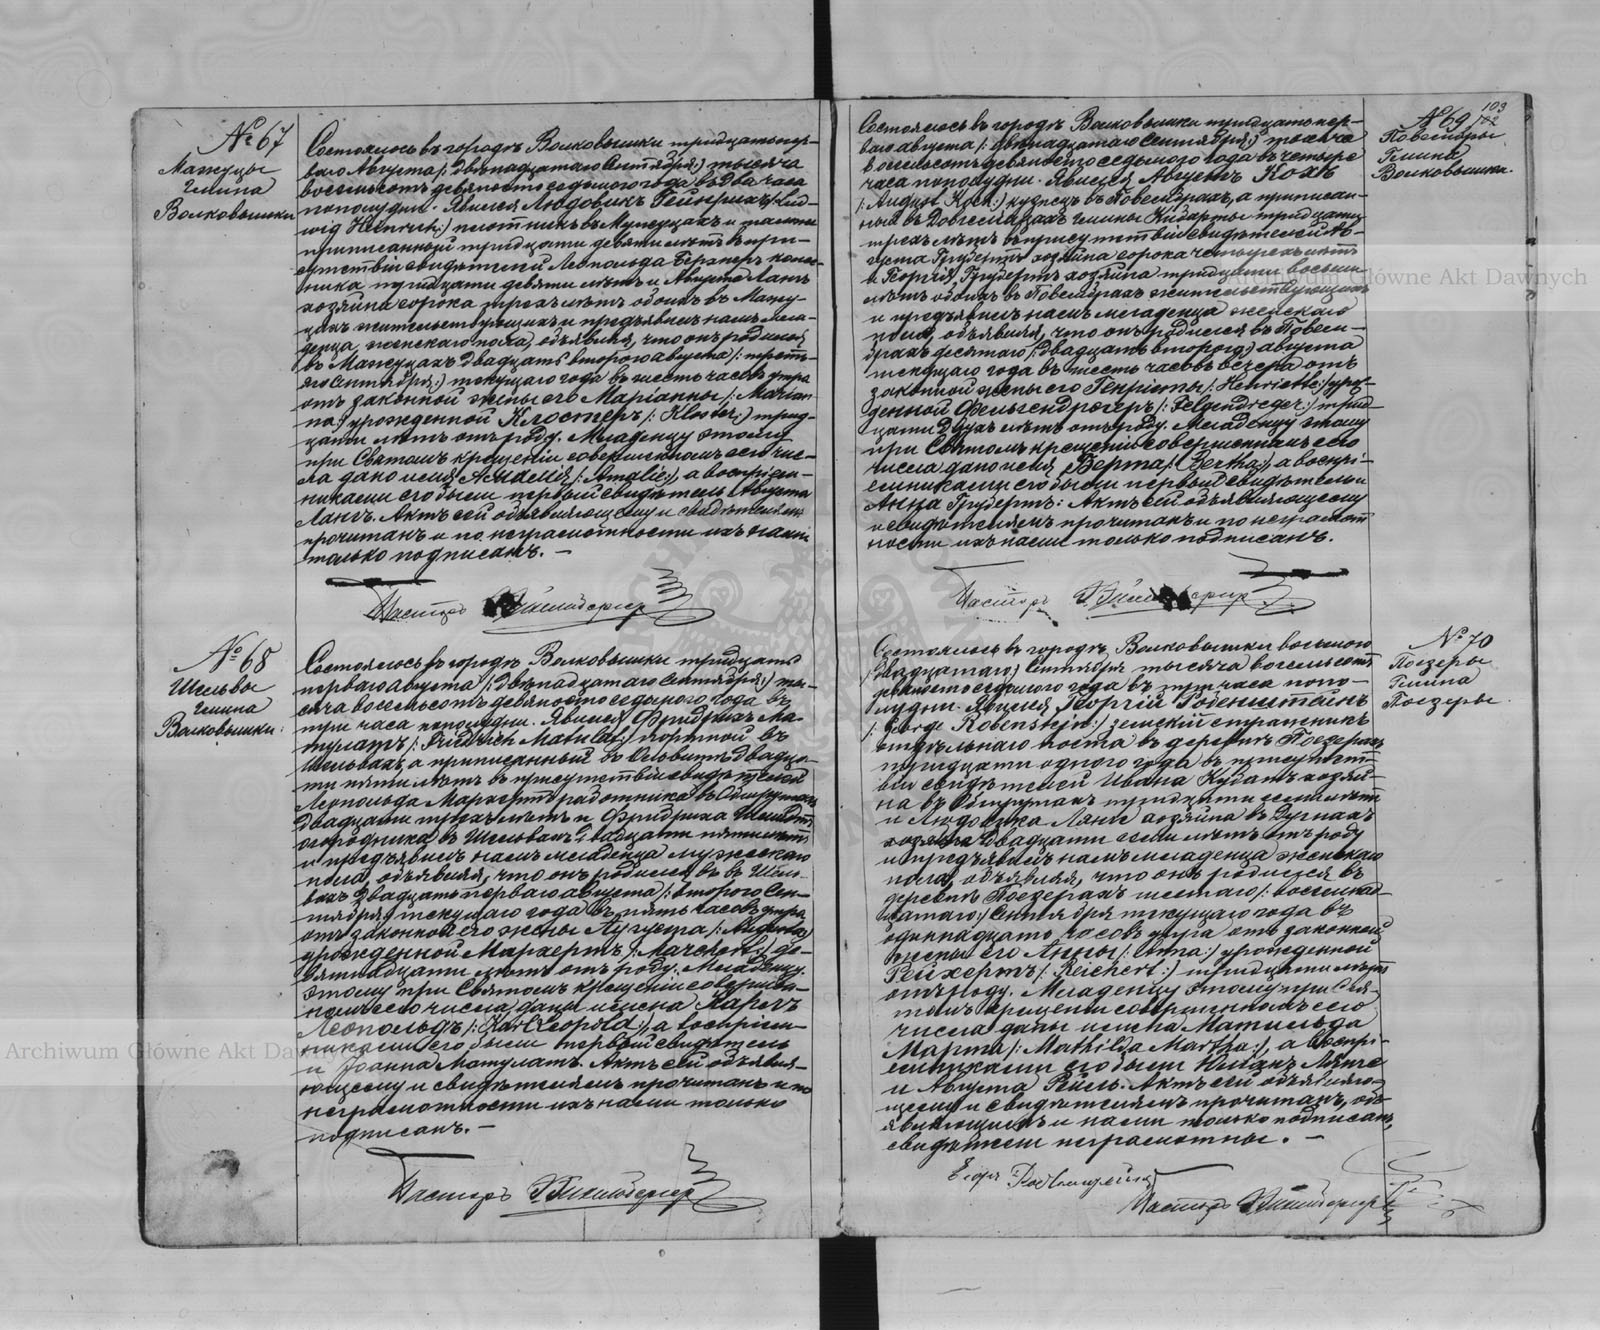 № 67
Мажуцы
Гмина
Волковышки
Состоялось въ городѣ Волковышки тридцать пер-
ваго Августа /: двѣнадцатаго Сентября :/ тысяча
восемьсотъ девяносто седьмого года въ два часа
пополудни. Явился Людовикъ Гейнрихъ /: Lud-
wig Heinrich :/ плотникъ въ Мажуцахъ и тамже
приписанный тридцати девяти лѣтъ въ при-
сутствіи свидѣтелей Леопольда Бергнеръ колес-
ника тридцати девяти лѣтъ и Августа Лангъ
хозяина сорока трехъ лѣтъ обоихъ въ Мажу-
цахъ жительствующихъ и предъявилъ намъ мла-
денца женскаго пола, объявляя, что онъ родился
въ Мажуцахъ двадцать второго августа /: треть-
яго Сентября :/ текущаго года въ шесть часовъ утра
отъ законной жены его Маріанны /: Marian-
na :/ урожденной Клостеръ /: Kloster :/ трид-
цати лѣтъ отъ роду. Младенцу этому
при Святомъ крещеніи совершенномъ сего чис-
ла дано имя Амалія /: Amalie :/, а воспріем-
никами его были первый свидѣтель и Августа
Лангъ. Актъ сей объявляющему и свидѣтелямъ
прочитанъ и по неграмотности ихъ нами
только подписанъ. —
Пасторъ
№ 68
Шельвы
Гмина
Волковышки.
Состоялось въ городѣ Волковышки тридцать
перваго августа /: двѣнадцатаго Сентября :/ ты-
сяча восемьсотъ девяносто седьмого года въ
три часа пополудни. Явился Фридрихъ Ма-
тулатъ /: Friedrich Matulat :/ портной въ
Шельвахъ, а приписанный въ Ольвитѣ двадца-
ти пяти лѣтъ въ присутствіи свидѣтелей
Леопольда Мархертъ работника въ
двадцати трехъ лѣтъ и Фридриха Шмидтъ
огородника въ Шельвахъ двадцати пяти лѣтъ
и предъявилъ намъ младенца мужескаго
пола, объявляя, что онъ родился въ въ Шель-
вахъ двадцать перваго августа /: второго Сен-
тября :/ текущаго года въ пять часовъ утра
отъ законной его жены Августы /: Augusta :/
урожденной Мархертъ /: Marchert :/ де-
вятнадцати лѣтъ отъ роду. Младенцу
этому при Святомъ крещеніи совершен-
номъ сего числа, даны имена Карлъ
Леопольдъ /: Karl Leopold :/, а воспріем-
никами его были первый свидѣтель
и Іоанна Матулатъ. Актъ сей объявля-
ющему и свидѣтелямъ прочитанъ и по
неграмотности ихъ нами только
подписанъ. —
Пасторъ
103
№ 69
Повембры
Гмина
Волковышки.
Состоялось въ городѣ Волковышки тридцать пер-
ваго августа /: двѣнадцатаго Сентября :/ тысяча
восемьсотъ девяносто седьмого года въ четыре
часа пополудни. Явился Августъ Кохъ
/: August Koch :/ кузнецъ въ Повембрахъ, а приписан-
ный въ гмины Кибарты тридцати
трехъ лѣтъ въ присутствіи свидѣтелей Ав-
густа Грубертъ хозяина сорока четырехъ лѣтъ
и Георгія Грубертъ хозяина тридцати восьми
лѣтъ обоихъ въ Повембрахъ жительствующихъ
и предъявилъ намъ младенца женскаго
пола, объявляя, что онъ родился въ Повем-
брахъ десятаго /: двадцать второго :/ августа
текущаго года въ шесть часовъ вечера отъ
законной жены его Генріэты /: Henriette :/ урож-
денной Фельгендрегеръ /: Felgendreger :/ трид-
цати двухъ лѣтъ отъ роду. Младенцу этому
при Святомъ крещеніи совершенномъ сего
числа дано имя Берта /: Bertha :/, а воспрі-
емниками его были первый свидѣтель и
Анна Грубертъ. Актъ сей объявляющему
и свидѣтелямъ прочитанъ и по неграмот-
ности ихъ нами только подписанъ.
Пасторъ
№ 70
Поезеры
Гмина
Поезеры.
Состоялось въ городѣ Волковышки восьмого
/: двадцатаго :/ Сентября тысяча восемьсотъ
девяносто седьмого года въ три часа попо-
лудни. Явился Георгій Робенштейнъ
/: George Robenstein :/ земскій стражникъ
отдѣльнаго поста въ деревнѣ Поезерахъ
тридцати одного года въ присутст-
віи свидѣтелей Ивана Кудатъ хозяи-
на въ тридцати семи лѣтъ
и Людовика Лянге хозяина въ
хозяина двадцати семи лѣтъ отъ роду
и предъявилъ намъ младенца женскаго
пола, объявляя, что онъ родился въ
деревнѣ Поезерахъ шестаго /: восемнад-
цатаго :/ Сентября текущаго года въ
одиннадцать часовъ утра отъ законной
жены его Анны /: Anna :/ урожденной
Рейхертъ /: Reichert :/ тридцати лѣтъ
отъ роду. Младенцу этому при Свя-
томъ крещеніи совершенномъ сего
числа даны имена Матильда
Марта /: Mathilda Martha :/, а воспрі-
емниками его были Юліанъ Лянге
и Августа Рейсъ. Актъ сей объявляю-
щему и свидѣтелямъ прочитанъ, объ-
являющимъ и нами только подписанъ,
свидѣтели неграмотны. —
Пасторъ
Archiwum Główne Akt Dawnych
Archiwum Główne Akt Dawnych